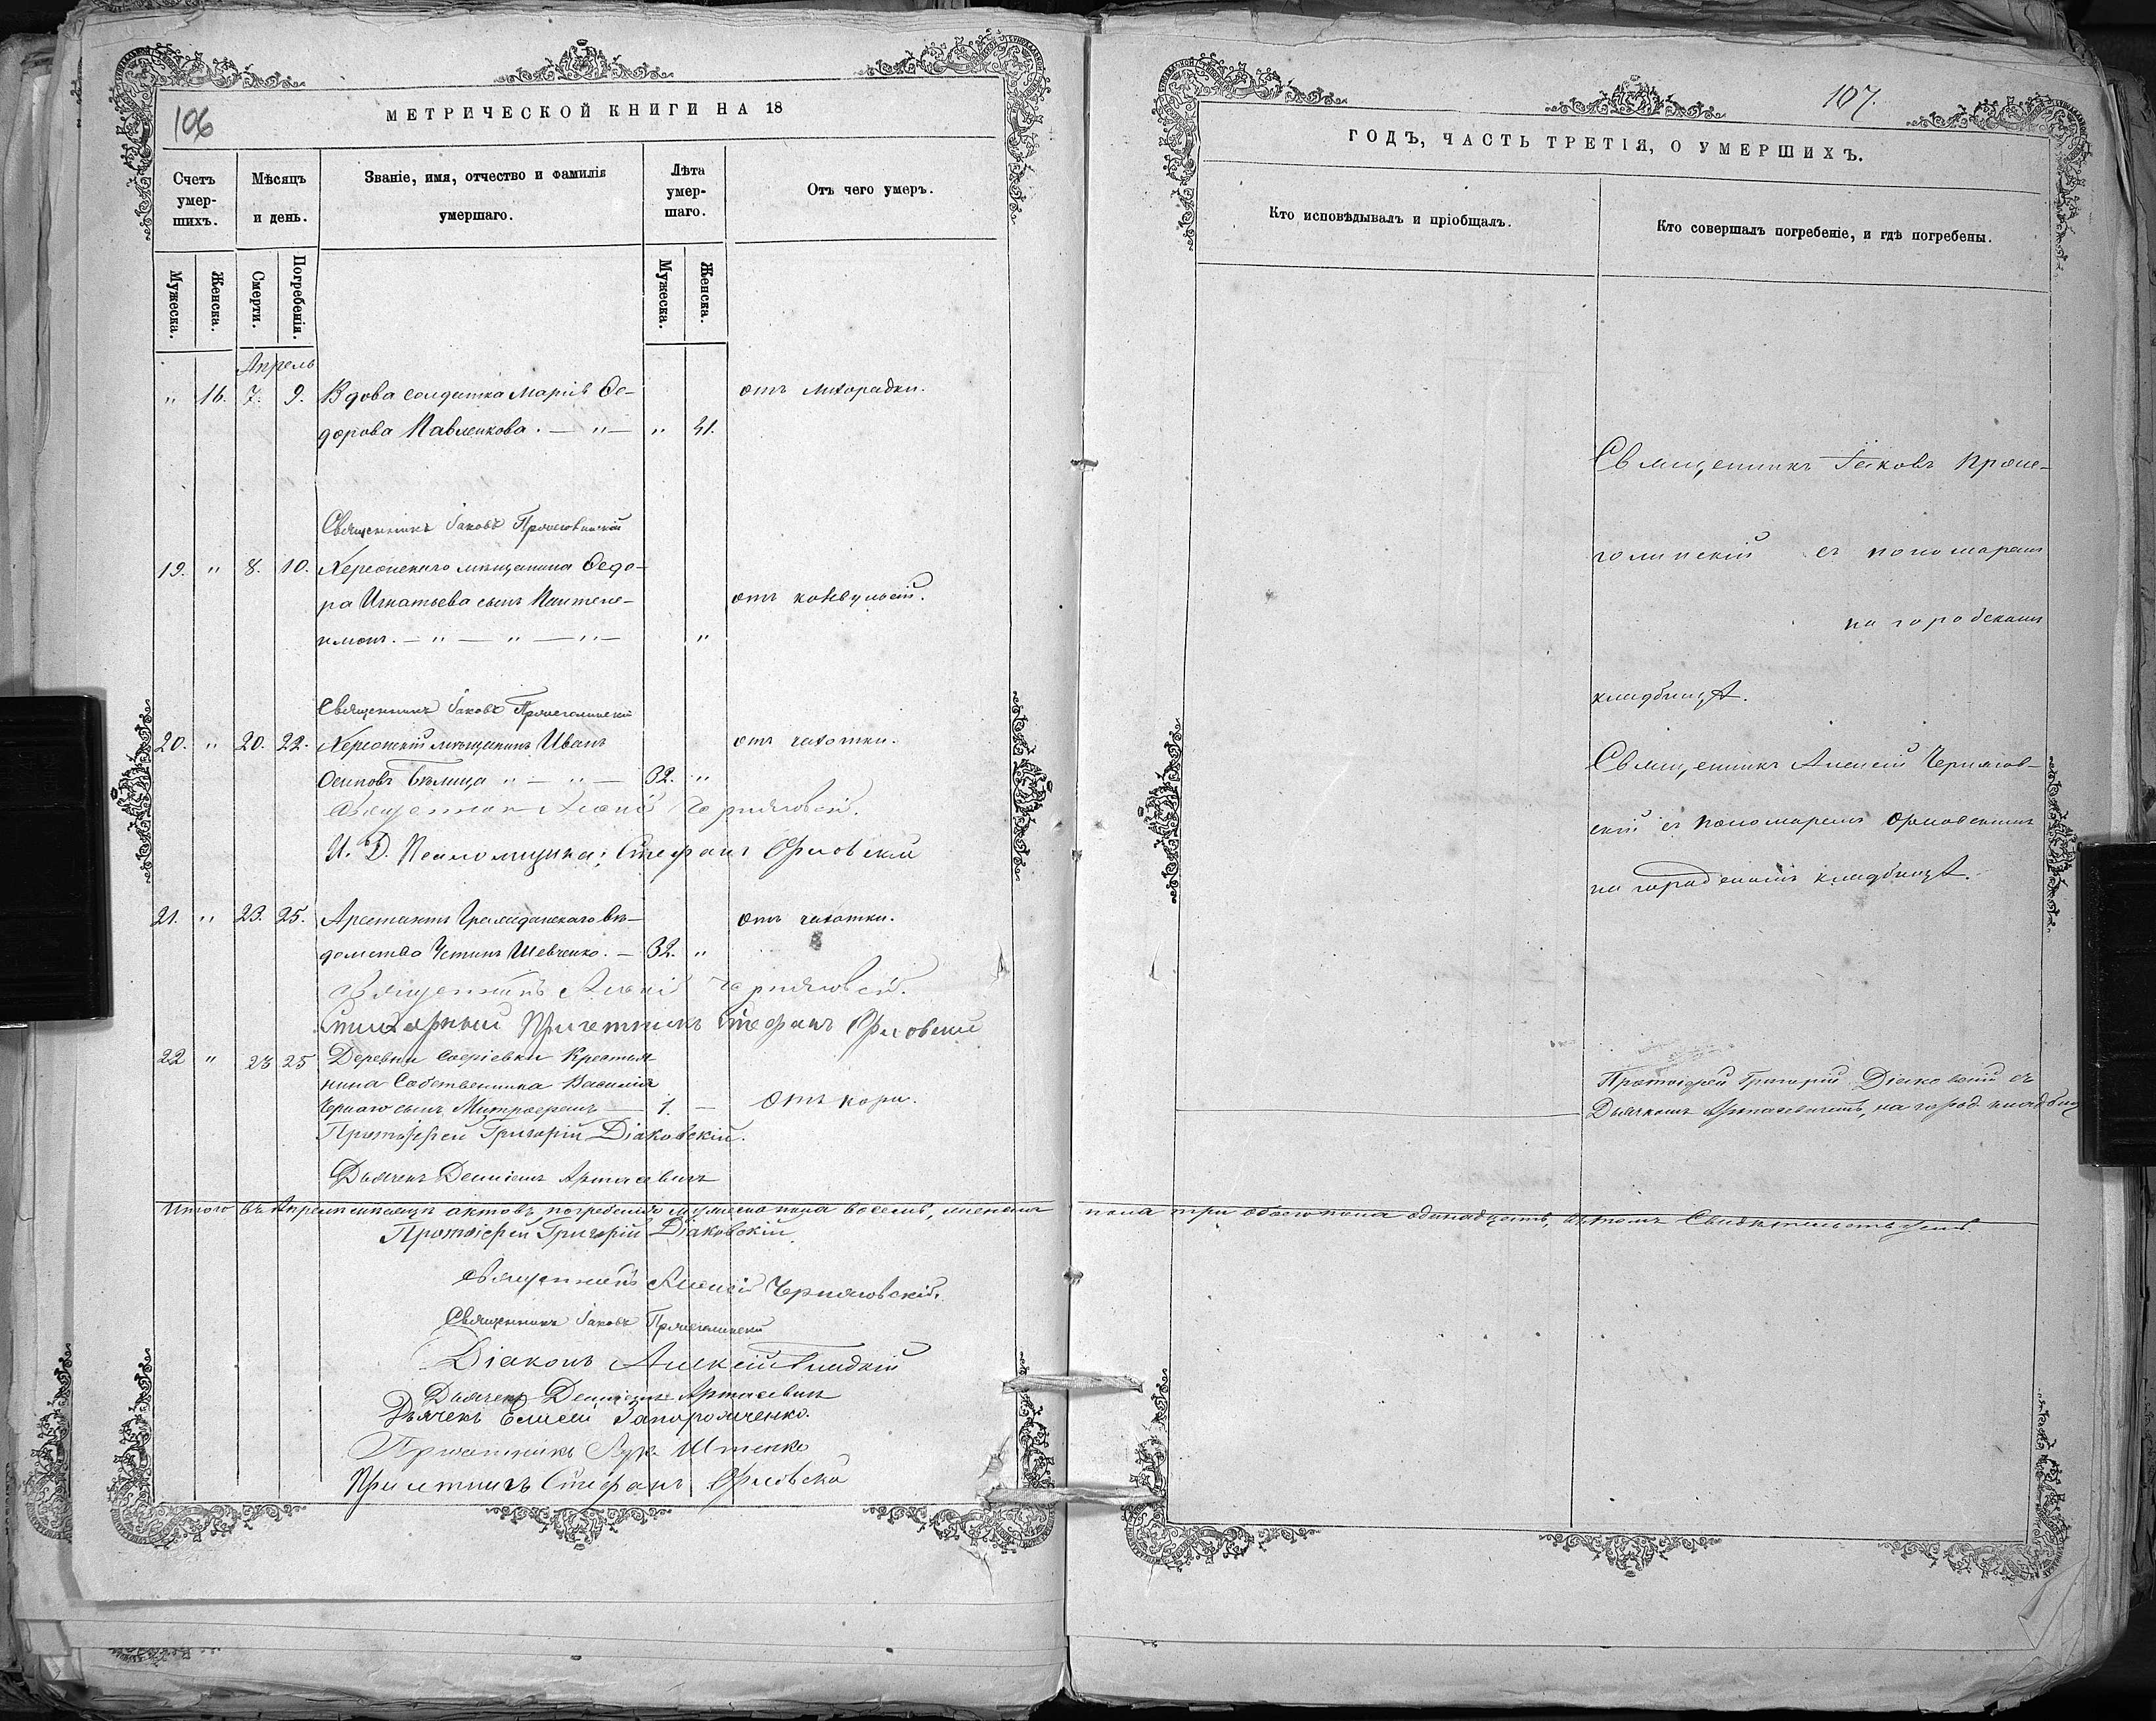 106
МЕТРИЧЕСКОЙ КНИГИ НА 18
Счетъ умер- шихъ.
Мѣсяцъ и день.
Званіе, имя, отчество и фамилія умершаго.
Лѣта умер- шаго.
Отъ чего умеръ.
Мужеска.
Женска.
Смерти.
Погребенія.
Мужеска.
Женска.
Апрель
" 16. 7. 9. Вдова солдатка Марія Ѳе- отъ лихорадки.
дорова Павленкова. — " — " 41.
Священникъ Іаковъ
19. " 8. 10. Херсонскаго мѣщанина Ѳедо-
ра Игнатьева сынъ Пантеле- отъ конвульсій.
имонъ. — " — " — " — "
Священникъ Іаковъ
20. " 20. 22. Херсонскій мѣщанинъ Иванъ отъ чахотки.
Осиповъ Бѣлица " — " — 32. "
Священникъ Алексій Чернявскій.
И. Д. Псаломщика, Стефанъ Орловскій
21. " 23. 25. Арестантъ Гражданскаго вѣ- отъ чахотки.
домства Устинъ Шевченко. — 32. "
Священникъ Алексій Чернявскій.
Стихарный Причетникъ Стефанъ Орловскій
22 " 23 25 Деревни Софіевки Крестья-
нина Собственника Василія
Чернаго сынъ Митрофанъ — 1. — Отъ кори.
Протоіерей Григорій Діаковскій.
Дьячекъ Артасевичъ
Итого въ Апрелѣ мѣсяцѣ актовъ погребенія мужеска пола восемь, женска
Протоіерей Григорій Діаковскій.
Священникъ Алексій Чернявскій.
Священникъ Іаковъ
Діаконъ Алексій
Дьячекъ Артасевичъ
Дьячекъ Елисей Запорожченко.
Причетникъ
Причетникъ Стефанъ Орловскій
107.
ГОДЪ, ЧАСТЬ ТРЕТІЯ, О УМЕРШИХЪ.
Кто исповѣдывалъ и пріобщалъ.
Кто совершалъ погребеніе, и гдѣ погребены.
Священникъ Іаковъ
съ пономаремъ
на городскомъ
кладбищѣ.
Священникъ Алексій Черняв-
скій съ Пономаремъ Орловскимъ
на городскомъ кладбищѣ.
Протоіерей Григорій Діаковскій съ
Дьячкомъ Артасевичемъ, на город. кладбищ
пола три обоего пола одинадцать, въ томъ Свидѣтельствуемъ.